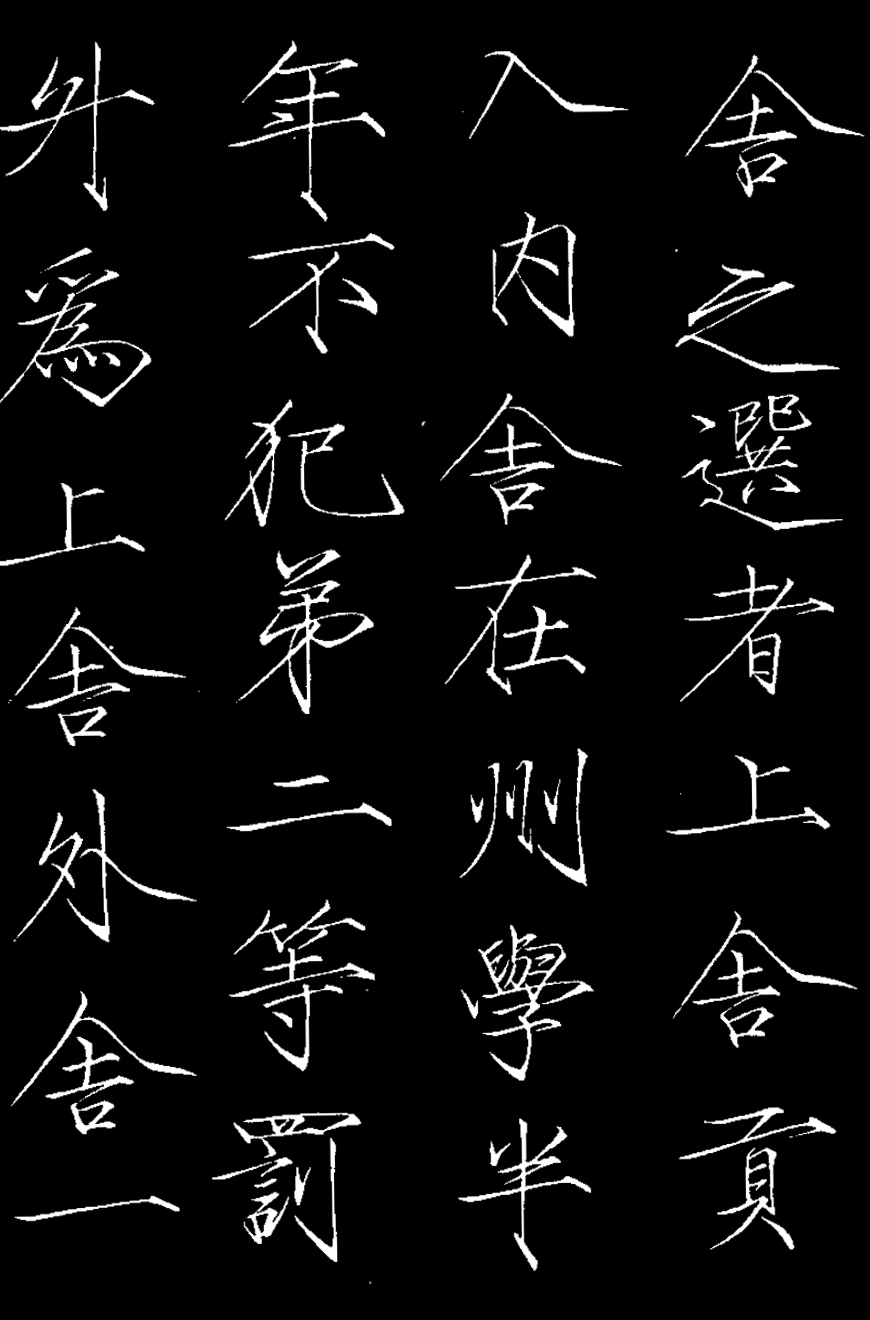 舍之選者上舍貢
入內舍在州學半
年不犯弟二等罰
升爲上舍外舍一